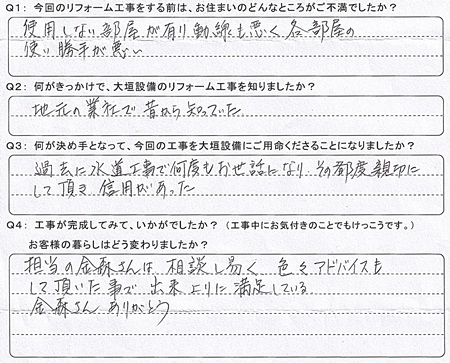 Q1：今回のリフォーム工事をする前は、お住まいのどんなところがご不満でしたか？
使用しない部屋が有り動線も悪く各部屋の
使い勝手が悪い
Q2：何がきっかけで、大垣設備のリフォーム工事を知りましたか？
地元の業社で昔から知っていた
Q3：何が決め手となって、今回の工事を大垣設備にご用命くださることになりましたか？
過去に水道工事で何度もお世話になり その都度親切に
して頂き 信用があった
Q4：工事が完成してみて、いかがでしたか？（工事中にお気付きのことでもけっこうです。）
お客様の暮らしはどう変わりましたか？
担当の金森さんは 相談し易く 色々アドバイスも
して頂いた事で 出来上りに満足している
金森さん ありがとう